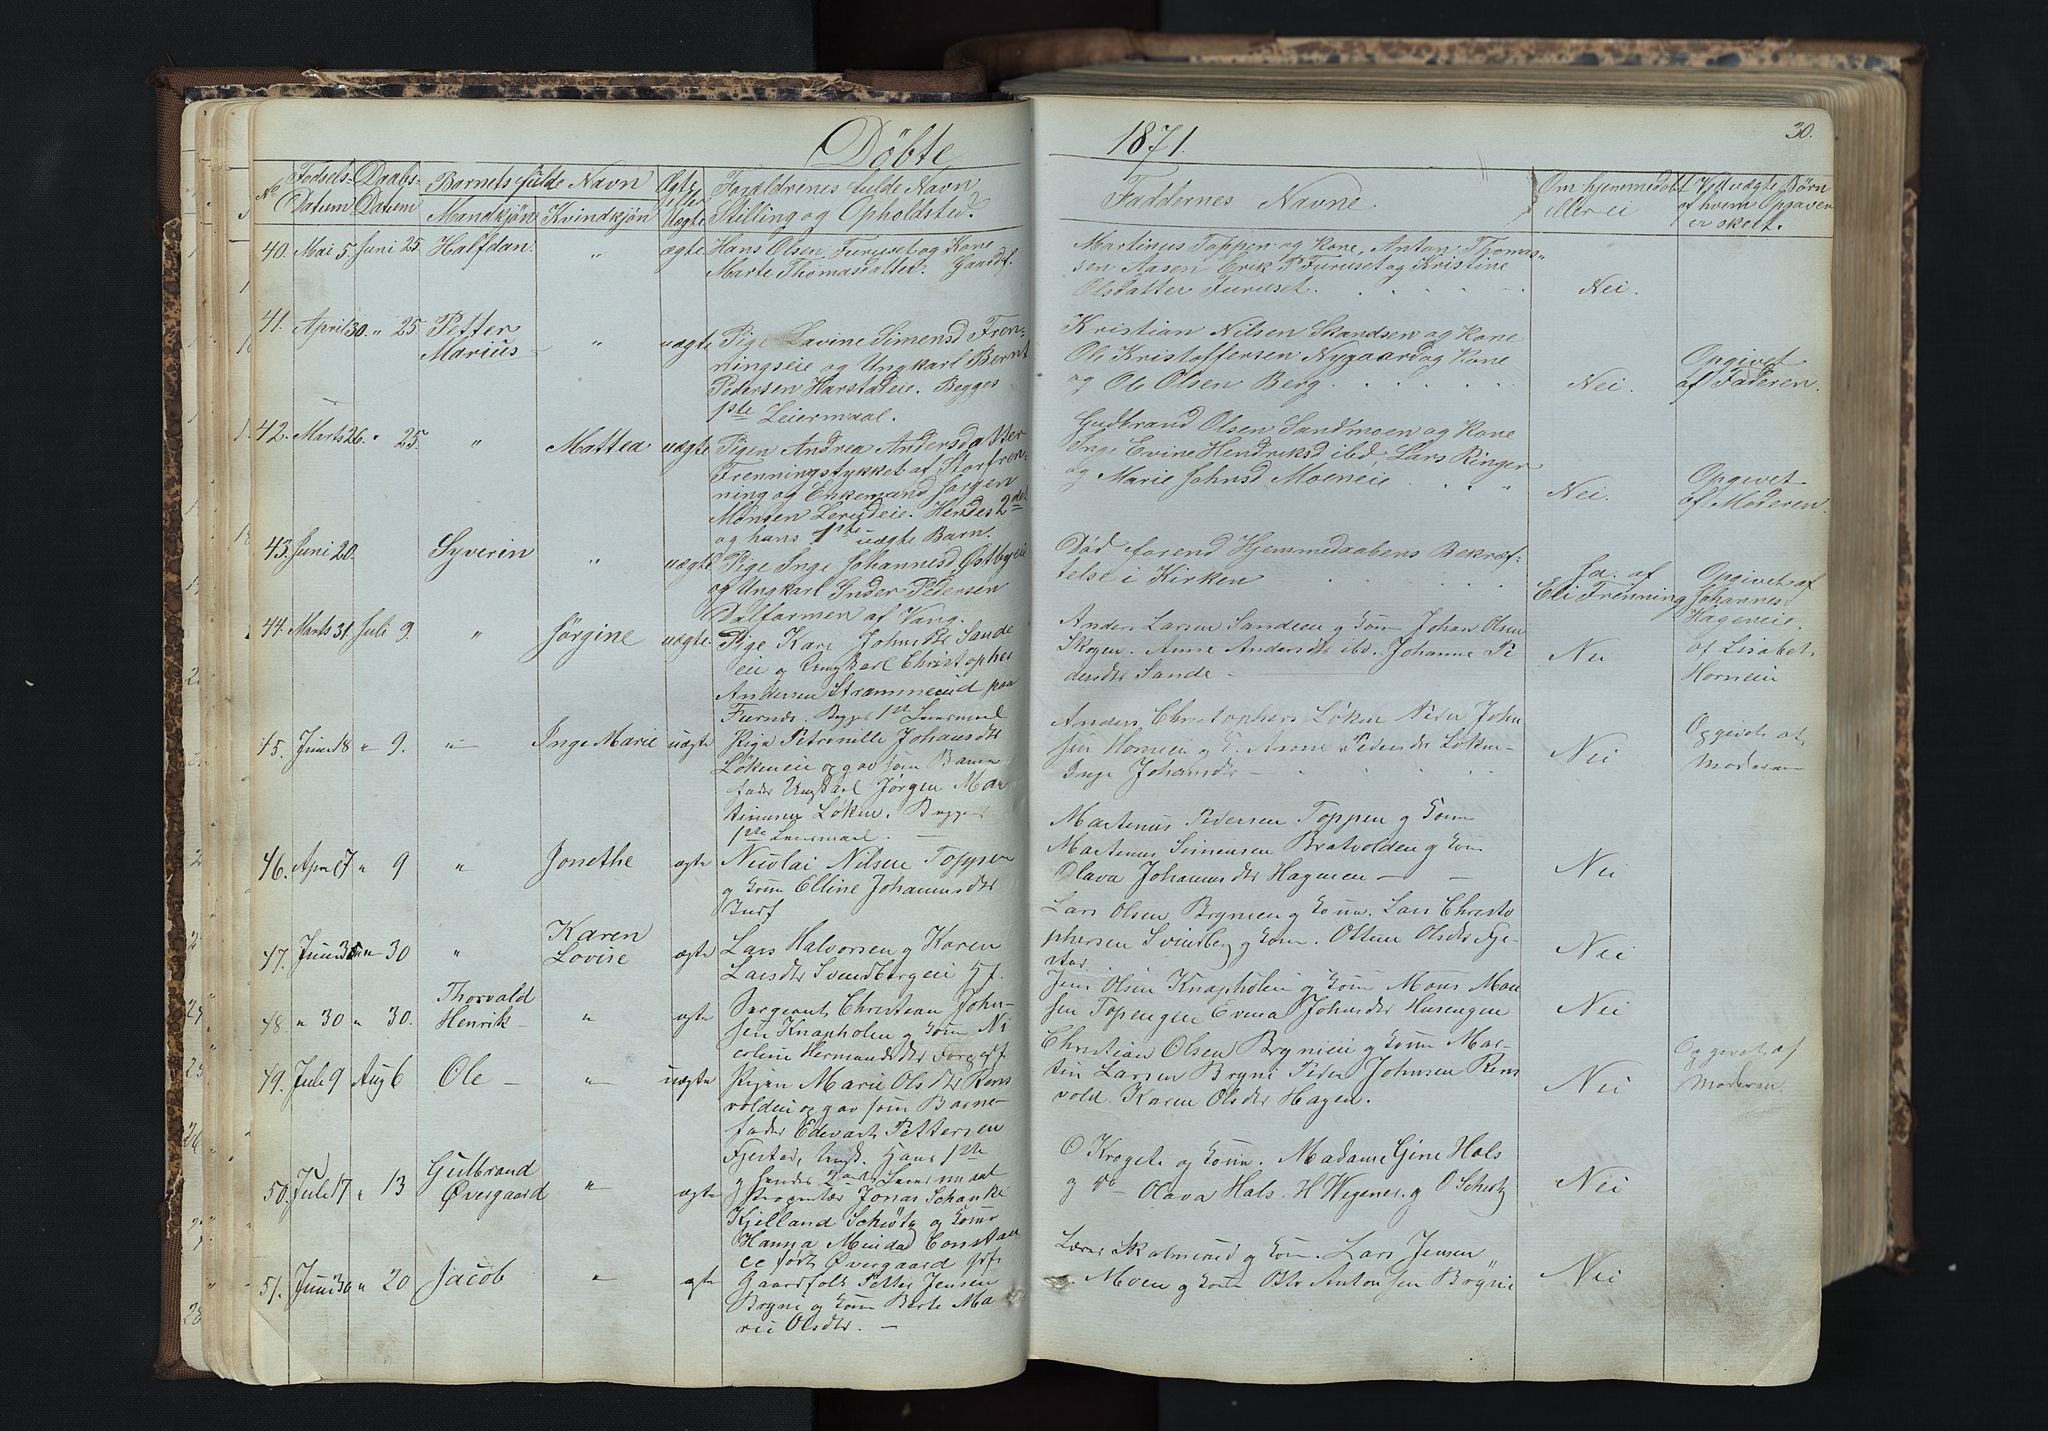 Döbte
1871.
30.
No Födsels- Daabs- Barnets fulde Navn Ægte Forældrenes fulde Navn
Datum Datum Mandkjön Kvindkjön eller Uægte Stilling og Opholdsted.
Faddernes Navne.
Om hjemmedöbt eller ei
Ved uægte Börn af hvem Opgaven er skeet.
40. Mai 5. Juni 25. Halfdan. " ægte Hans Olsen Furuset og Kone
Marte Thomasdatter. Gaardf.
Martinus Toppen og Kone, Anton Thomas-
sen Aasen Erik P. Furuset og Kristine
Olsdatter Furuset.
Nei.
41. April 30. " 25. Petter " uægte Pige Lavine Simensd Fren-
Marius
ningseie og Ungkarl Bernt
Pedersen Harstadeie. Begges
1ste Leiermaal.
Kristian Nilsen Skandsen og Kone
Ole Kristoffersen Nygaard og Kone
og Ole Olsen Berg.
Nei.
Opgivet
af Faderen.
42. Marts 26. " 25. " Mattea uægte Pigen Andrea Andersdatter
Frenningstykket af Storfren-
ning og Enkemand Jørgen
Monsen Lerudeie. Hendes 2det
og hans 1ste uægte Barn.
Gudbrand Olsen Sandmoen og Kone
Inge Evine Hendriksd ibd, Lars Ringer
og Marie Johnsd Moeneie
Nei.
Opgivet
af Moderen.
43. Juni 20. Syverin " uægte Pige Inge Johannesd Østbyeie
og Ungkarl Inder Pedersen
Dalfarmen af Vang.
Död forend Hjemmedaabens Bekræf-
telse i Kirken
Ja. af
Eli Frenning
Opgivet af
Johannes
Hageneie.
44. Marts 31. Juli 9. " Jørgine uægte Pige Kari Johnsdtr Sande
eie og Ungkarl Christopher
Andersen Strømmeeid paa
Furnes. Begges 1ste Leiermaal
Anders Larsen Sandeen og Kone Johan Olsen
Skogen. Anne Andersdtr ibd. Johanne Pe
dersdtr Sande
Nei
af Lisabet
Horneie
45. Juni 18 " 9. " Inge Marie uægte Pige Petronille Johansdtr
Løkeneie og gav som Barne
fader Ungkarl Jørgen Mar
tinusen Løken. Begges
1ste Leiermaal.
Anders Christophers Løken Peder John
sen Horneie og K. Anne Pedersdtr Løken
Inge Johansdtr
Nei
Opgivet af
Moderen
46. April 7 " 9 " Jonethe ægte Nicolai Nilsen Toppen
og Kone Elline Johannesdtr
Martinus Pedersen Toppen og Kone
Martinus Simensen Bratvolden og Kone
Olava Johannesdtr Hagneien
Nei
47. Juni " 30 " Karen ægte Lars Halvorsen og Karen
Lovise
Larsdtr Svendbergeie Hf.
Lars Olsen Brynieie og Kone. Lars Christo
phersen Svendberg og Kone.
Nei
48. " 30 " 30. Thorvald " ægte Sergeant Christian John-
Henrik
sen Knapholen og Kone Ni
coline Hermandsdtr
Jens Olsen Knapholen og Kone Mons Mon
sen Topengen Evina Johnsdtr Husengen
Nei
49. Juli 9 Aug 6 Ole " uægte Pigen Marie Olsdtr Rens
volden og gav som Barne-
fader Edevart Pettersen
Fjestad, Ungk. Hans 1ste
og hendes 2det Leiermaal
Christian Olsen Brynieie og Kone Mar-
tin Larsen Bryni Peder Johnsen Rens
vold. Karen Olsdtr Hagen.
Nei
Opgivet af
Moderen
50. Juli 17 " 13 Gulbrand " ægte Proprietær Jonas Schanke
Øvergaard
Kjelland Schiøtz og Kone
Hanna Minda Constan
ce født Øvergaard
O Krogete og Kone. Madame Gine Hals
og do Olava Hals. H Wegener og O Schiøtz
Nei
51. Juni 30 " 20 Jacob " ægte Gaardfolk Petter Jensen
Bryni og Kone Berte Ma
rie Olsdtr.
Lærer Skolmerud og Kone. Lars Jensen
Moen og Kone Ole Antonsen Brynie
Nei